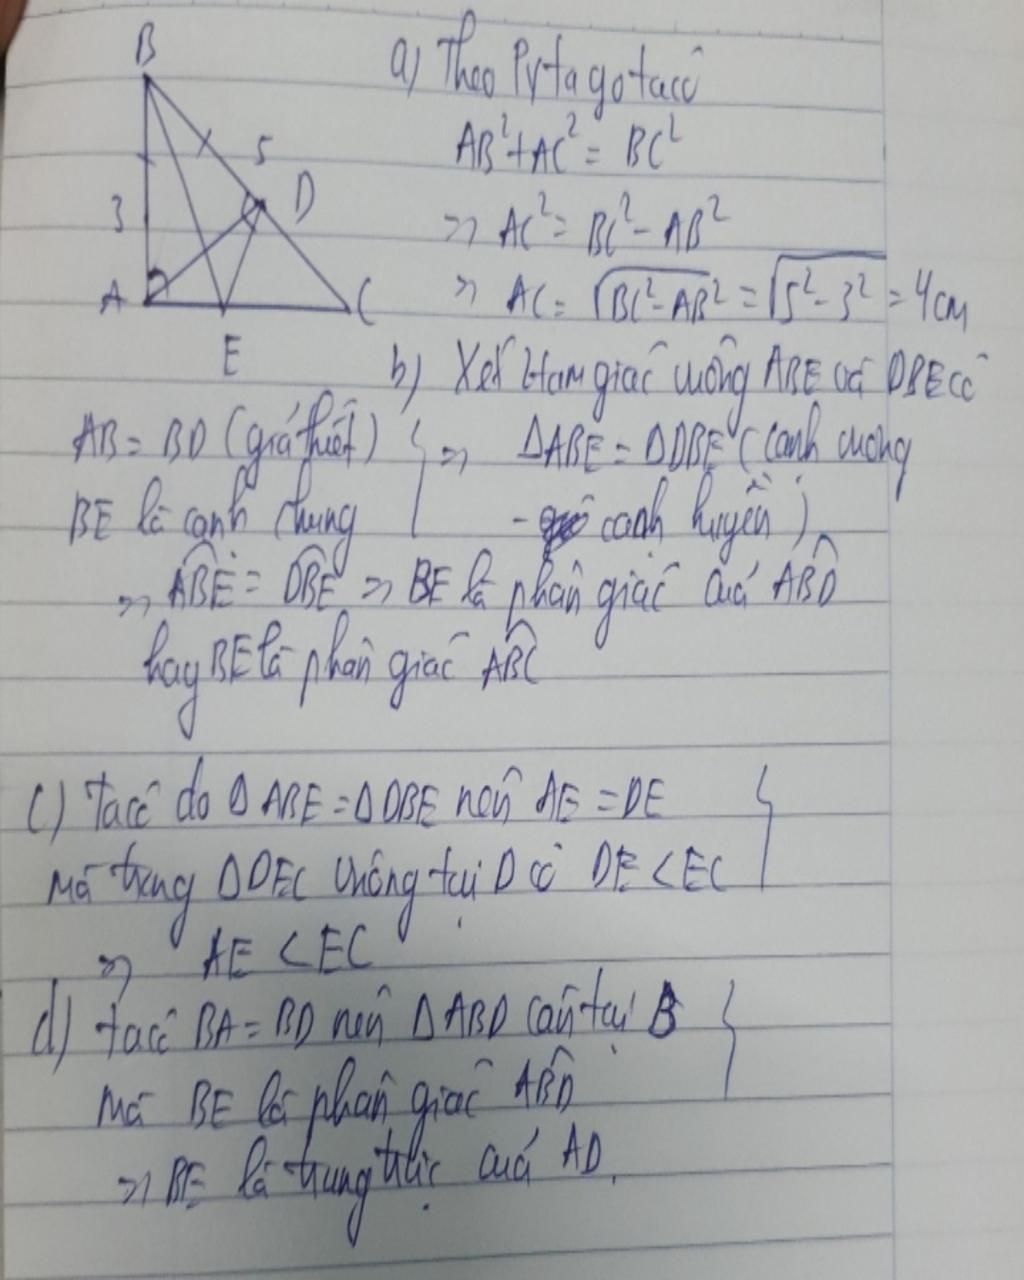 B
5
D
3
A
C
E
a) Theo Pytago ta có
AB² + AC² = BC²
=> AC² = BC² - AB²
=> AC = √BC² - AB² = √5² - 3² = 4cm
b) Xét tam giác vuông ABE và DBE có
AB = BD (giả thiết) } => ΔABE = ΔDBE (cạnh vuông
BE là cạnh chung - cạnh huyền)
=> ABE = DBE => BE là phân giác của ABD
hay BE là phân giác ABC
c) Ta có do ΔABE = ΔDBE nên AE = DE
mà trong ΔDEC vuông tại D có DE < EC
=> AE < EC
d) Ta có BA = BD nên ΔABD cân tại B
mà BE là phân giác ABD
=> BE là trung trực của AD.